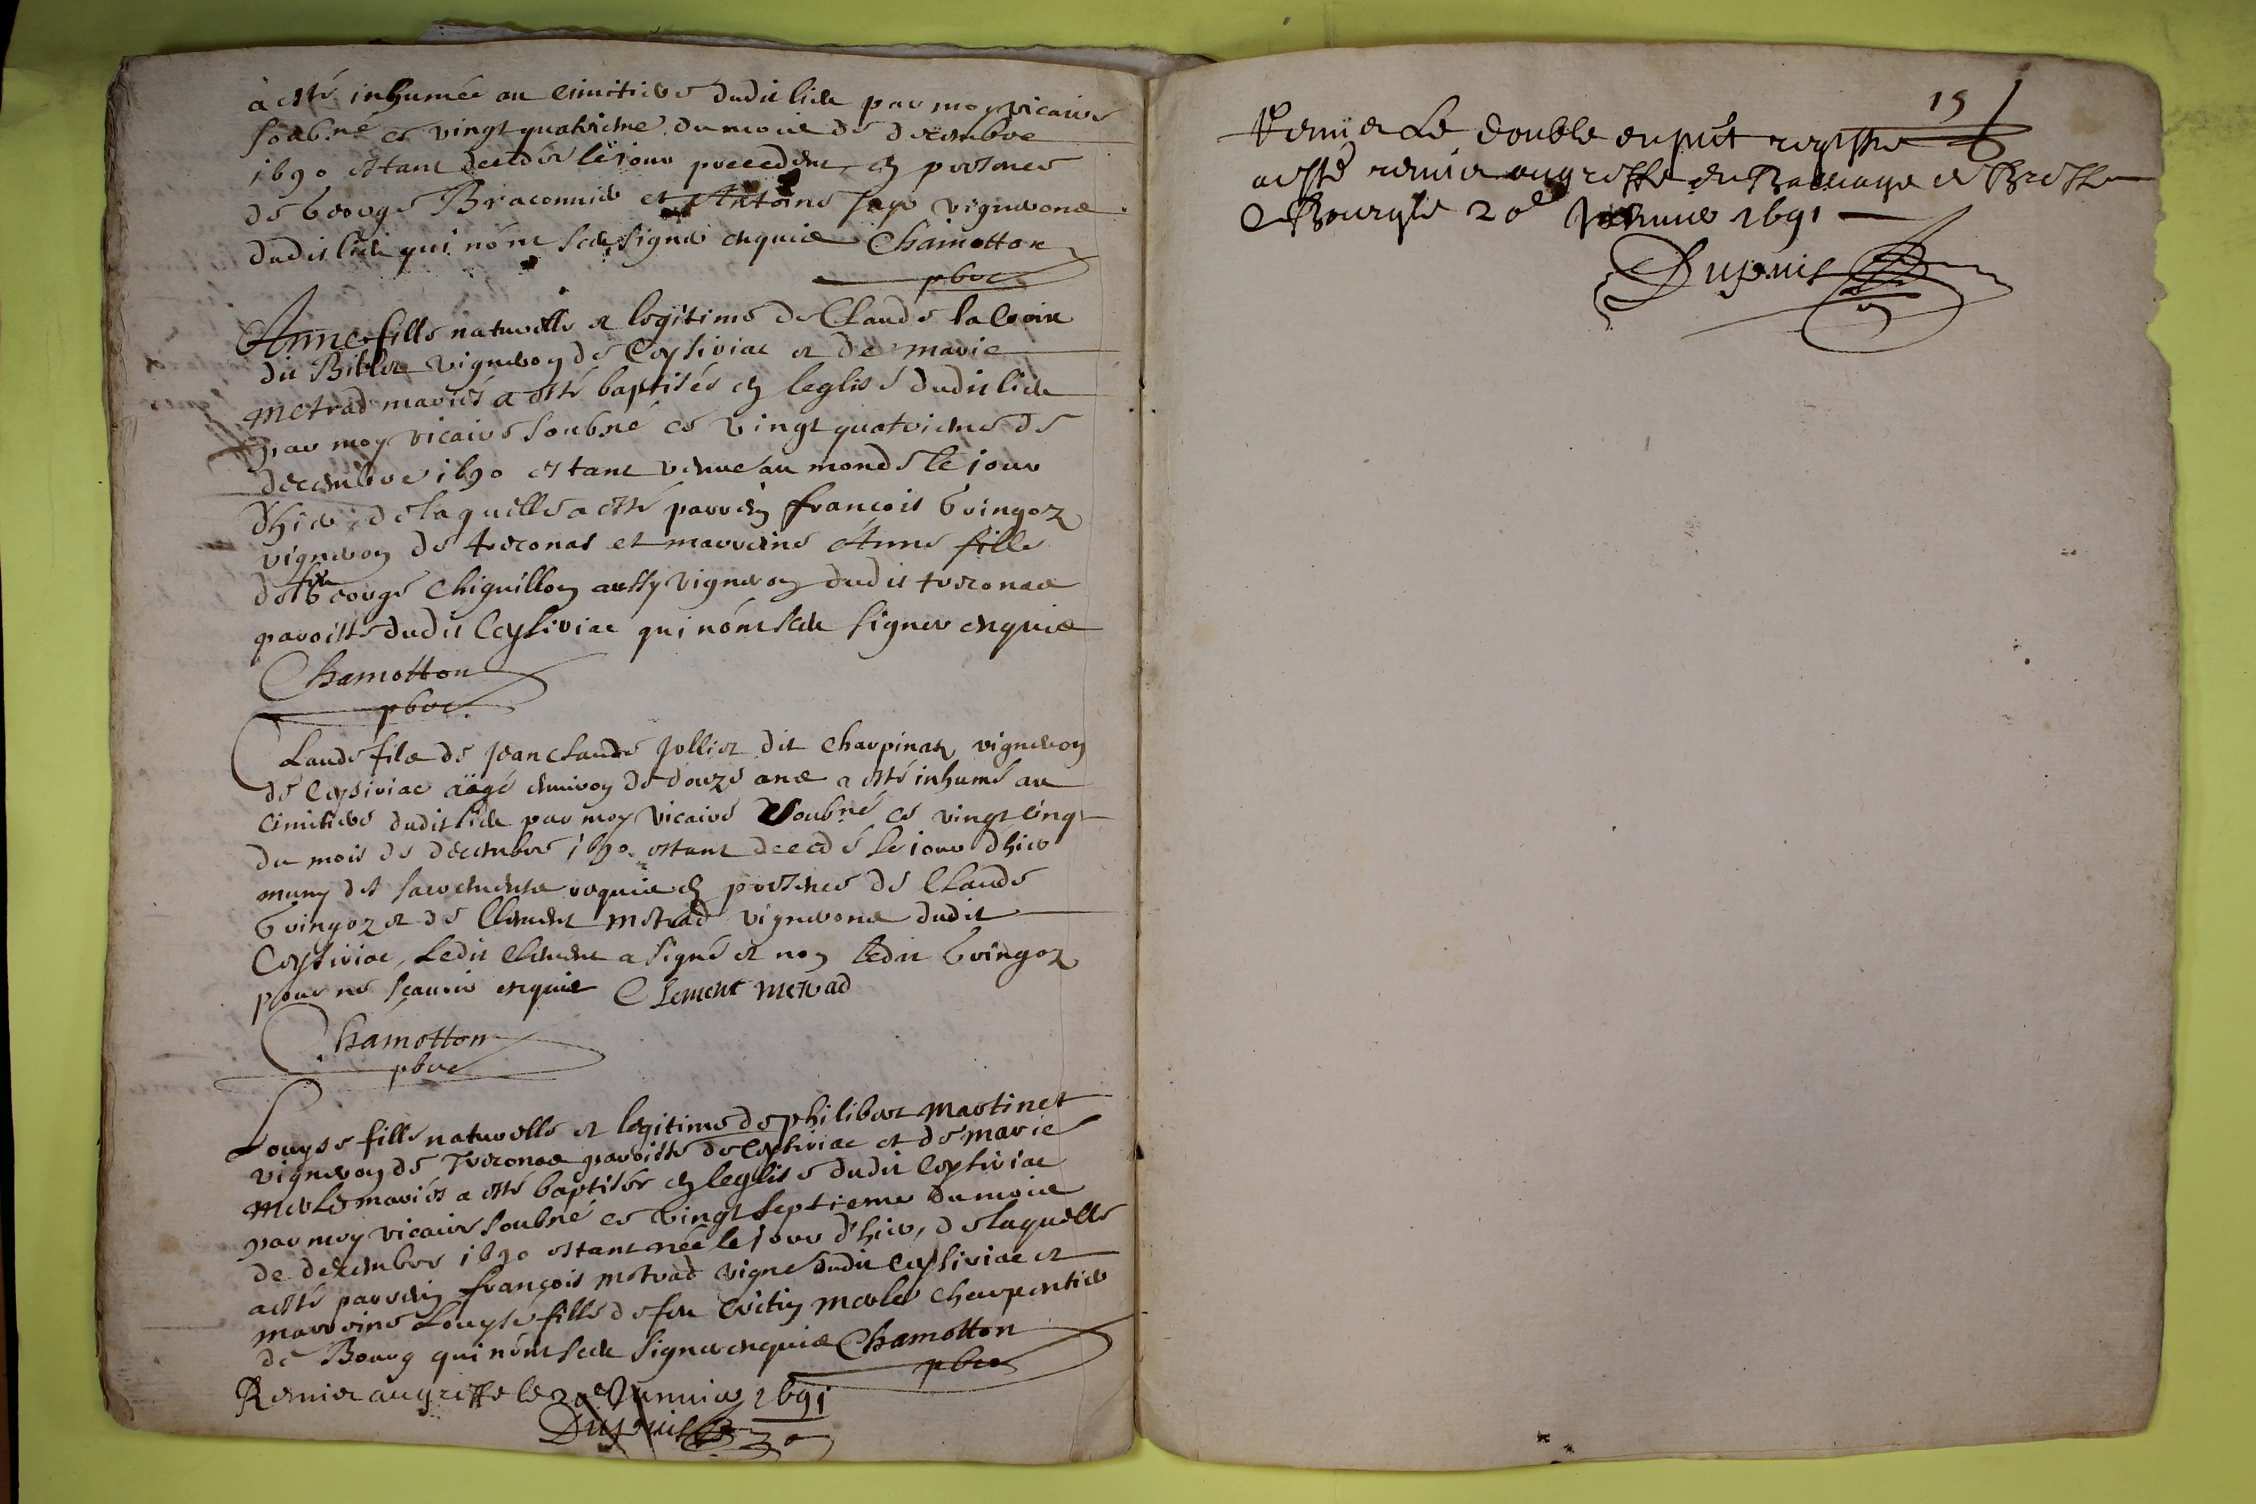 à esté inhumée au cimitiere dudit lieu par moy vicaire
soubné ce vingt quatrieme du mois de decembre
1690 estant decedée le jour precedent en presence
de George Braconnier et Antoine Jayr vignerons
dudit lieu qui nont sceu signer enquis Chamotton
pbre
Anne fille naturelle et legitime de Claude la Croix
dit vigneron de Ceyseriac et de marie
metrad mariés a esté baptisée en leglise dudit lieu
par moy vicaire soubné ce vingt quatrieme de
decembre 1690 estant venue au monde le jour
dhier de laquelle a esté parrein françois Gringoz
vigneron de treconas et marreine Anne fille
de feu George Chiquillon aussy vigneron dudit treconas
paroisse dudit Ceyseriac qui nont sceu signer enquis
Chamotton
pbre
Claude fils de Jean Claude Jolliet dit Charpinaz vigneron
de Ceyseriac aägé environ de douze ans a esté inhumé au
cimitiere dudit lieu par moy vicaire soubné ce vingt cinq
du mois de decembre 1690 estant decedé le jour dhier
muny des sacrements requis en presence de Claude
Gringoz et de Clement metrad vignerons dudit
Ceyseriac, ledit Clement a signé et non ledit Gringoz
pour ne sçavoir enquis Clement metrad
Chamotton
pbre
Louyse fille naturelle et legitime de philibert Martinet
vigneron de Treconas paroisse de Ceyseriac et de marie
merle mariés a esté baptisée en leglise dudit Ceyseriac
par moy vicaire soubné ce vingt septieme du mois
de decembre 1690 estant née le jour d'hier, de laquelle
a esté parrein françois metrad vigne dudit Ceyseriac et
marreine Louyse fille de feu merle charpentier
de Bourg qui nont sceu signer enquis Chamotton
pbre
Remis au greffe le 20e Janvier 1691
Dupuis
15
Remis le double du pnt registre
a esté remis au greffe du Balliage de Bresse
a Bourg le 20e Janvier 1691
Dupuis